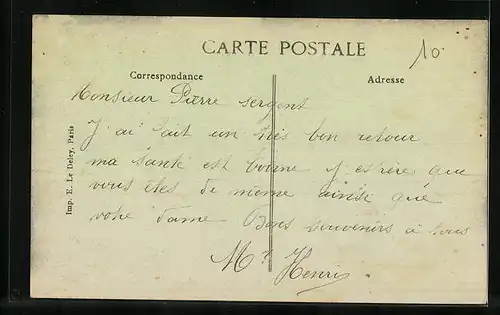 CARTE POSTALE
10
Correspondance
Adresse
Monsieur Pierre sergent
J'ai fait un très bon retour
ma santé est bonne j'espère que
vous êtes de meme ainsi que
votre dame Bons souvenirs à tous
Mr Henri
Imp. E. Le Deley, Paris